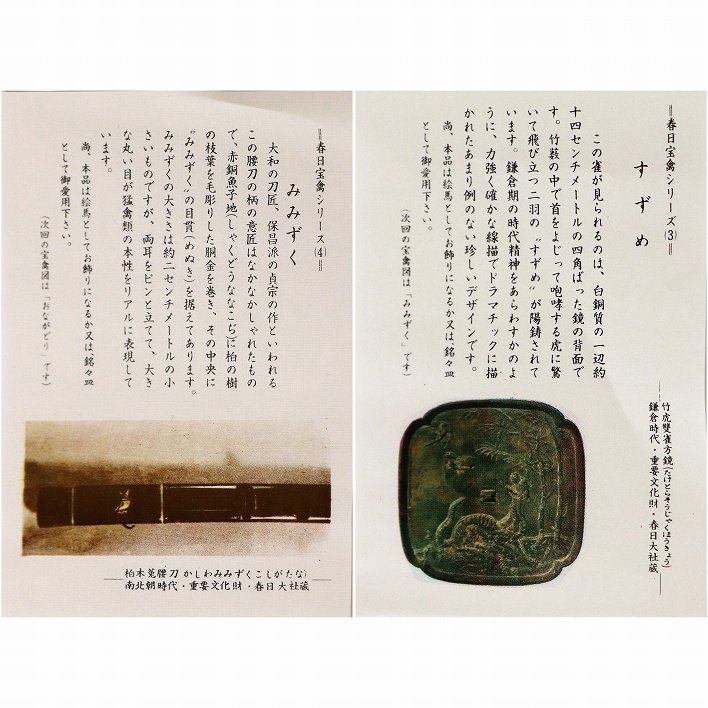 ＝春日宝禽シリーズ(3)＝
すずめ
この雀が見られるのは、白銅質の一辺約
十四センチメートルの四角ばった鏡の背面で
す。竹薮の中で首をよじって咆哮する虎に驚
いて飛び立つ二羽の〝すずめ〟が陽鋳されて
います。鎌倉期の時代精神をあらわすかのよ
うに、力強く確かな線描でドラマチックに描
かれたあまり例のない珍しいデザインです。
尚、本品は絵馬としてお飾りになるか又は、銘々皿
として御愛用下さい。
(次回の宝禽図は「みみずく」です)
竹虎雙雀方鏡(たけとらそうじゃくほうきょう)
鎌倉時代・重要文化財・春日大社蔵
＝春日宝禽シリーズ(4)＝
みみずく
大和の刀匠、保昌派の貞宗の作といわれる
この腰刀の柄の意匠はなかなかしゃれたもの
で、赤銅魚子地(しゃくどうななこぢ)に柏の樹
の枝葉を毛彫りした胴金を巻き、その中央に
〝みみずく〟の目貫(めぬき)を据えてあります。
みみずくの大きさは約二センチメートルの小
さいものですが、両耳をピンと立てて、大き
な丸い目が猛禽類の本性をリアルに表現して
います。
尚、本品は絵馬としてお飾りになるか又は、銘々皿
として御愛用下さい。
(次回の宝禽図は「おながどり」です)
柏木菟腰刀 かしわみみずくこしがたな)
南北朝時代・重要文化財・春日大社蔵